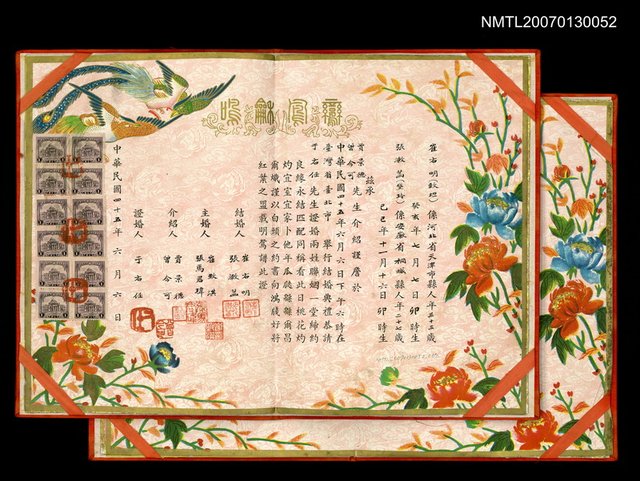 NMTL20070130052
鸞鳳和鳴
崔右明 係河北省天津市縣人年三十三歲
癸亥年七月七日 卯時生
張漱菡 係安徽省桐城縣人年二十七歲
己巳年十一月十六日 卯時生
茲承
賈景德
曾今可 先生介紹謹詹於
中華民國四十五年六月六日下午六時在
臺灣省臺北市 舉行結婚典禮恭請
于右任先生證婚兩姓聯姻一堂締約
良緣永結匹配同稱看此日桃花灼
灼宜室宜家卜他年瓜瓞緜緜爾昌
爾熾謹以白頭之約書向鴻牋好將
紅葉之盟載明鴛譜此證
結婚人 崔右明
張漱菡
主婚人 崔
張馬君
介紹人 賈景德
曾今可
證婚人 于右任
中華民國四十五年六月六日